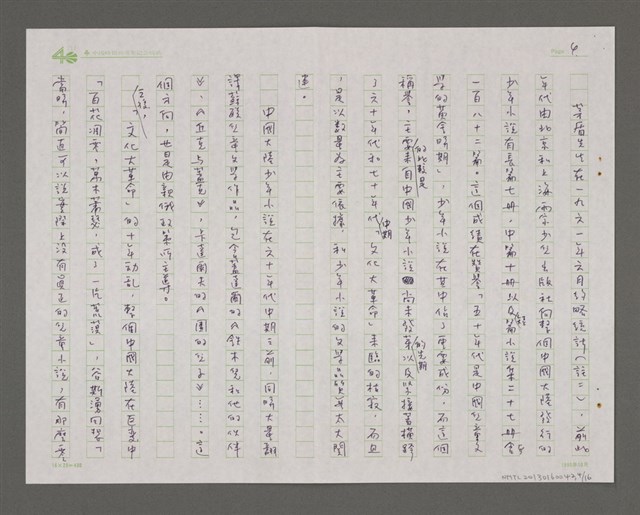 茅盾先生在一九六一年六月約略統計(註二),前此
年代由北京和上海兩家少兒出版社向整個中國大陸發行的
少年小說有長篇七冊,中篇十冊以及短篇小說集二十七冊
一百八十二篇。這個成績在贊譽「五十年代是中國兒童文
學的黃金時期」,少年小說在其中佔了重要成份。而這個
稱譽,主要的比較是來自中國少年小說尚未發萊的先期以及緊接著橫跨
了六十年代和七十年代中期,文化大革命」來臨的枯寂。而且
,是以數量為主要依據,和少年小說的文學品質無太大關
連。
中國大陸少年小說在六十年代中期之前,同時大量翻
譯蘇聯兒童文學作品,包含蓋達爾的《鐵木兒和他的伙伴
》、《丘克與蓋克》,卡達耶夫的《團的兒子》……。這
個方向,也是由親俄政策所主導。
文化大革命」的十年動亂,整個中國大陸在巨變中
「百花凋零,萬木蕭瑟,成了一片荒漠」,谷斯湧回想「
當時,簡直可以說實際上沒有真正的兒童小說,有那麼多
Page 4.
16×25=400
NMTL20130160043,4/16